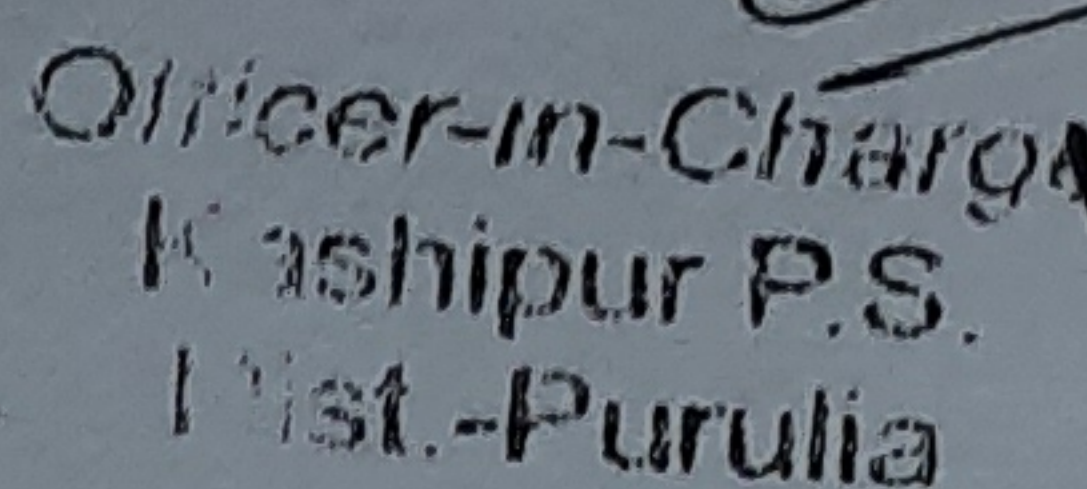 Officer-in-Charge
Kashipur P.S.
Dist.-Purulia